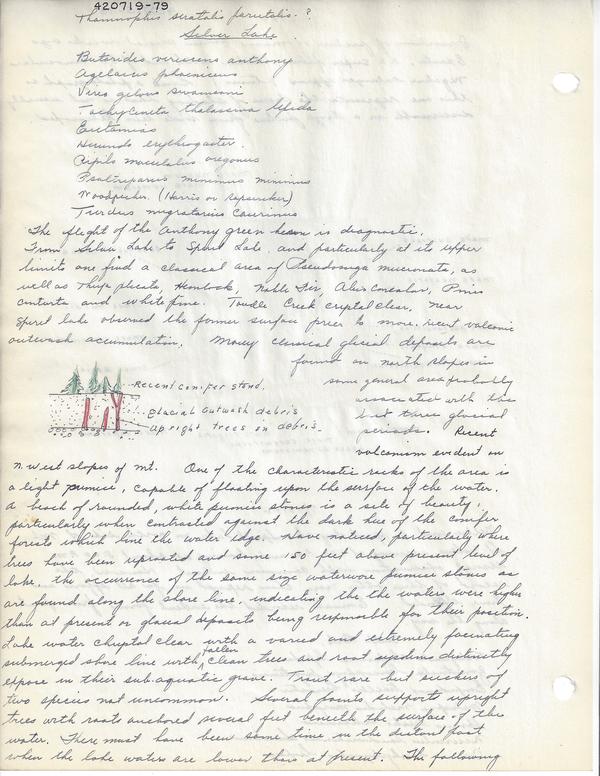 420719-79
Thamnophis siratalis parietalis ?
Silver Lake
Butorides virescens anthonyi
Agelaius phoeniceus
Vireo gilvus swainsoni
Tachycineta thalassina lepida
Eutamias
Hirundo erythrogaster.
Pipilo maculatus oregonus
Psaltriparus minimus minimus
Woodpecker. (Harris or Sapsucker)
Turdus migratorius caurinus
The flight of the Anthony green heron is diagnostic.
From Silver Lake to Spirit Lake, and particularly at its upper
limits one find a classical area of Pseudosuga mucronata, as
well as Thuja plicata, Hemlock, Noble Fir, Abies Concolor, Pinis
contorta and white pine. Toutle Creek crystal clear. Near
Spirit lake observed the former surface prior to more recent volcanic
outwash accumulation. Many classical glacial deposits are
found on north slopes in
same general area probably
associated with the
last three glacial
periods. Recent
volcanism evident on
Recent conifer stand.
glacial outwash debris
upright trees in debris.
n. west slopes of mt. One of the characteristic rocks of the area is
a light pumice, capable of floating upon the surface of the water.
A beach of rounded, white pumice stones is a site of beauty,
particularly when contrasted against the dark hue of the conifer
forests which line the water edge. Have noticed, particularly where
trees have been uprooted and some 150 feet above present level of
lake, the occurrence of the same size waterworn pumice stones as
are found along the shore line, indicating the the waters were higher
than at present or glacial deposits being responsible for their position.
Lake water chrystal clear with a varied and extremely facinating
submerged shore line with fallen clean trees and root systems distinctly
expose in their subaquatic grave. Trout rare but suckers of
two species not uncommon. Several points supports upright
trees with roots anchored several feet beneath the surface of the
water. There must have been some time in the distant past
when the lake waters are lower than at present. The following